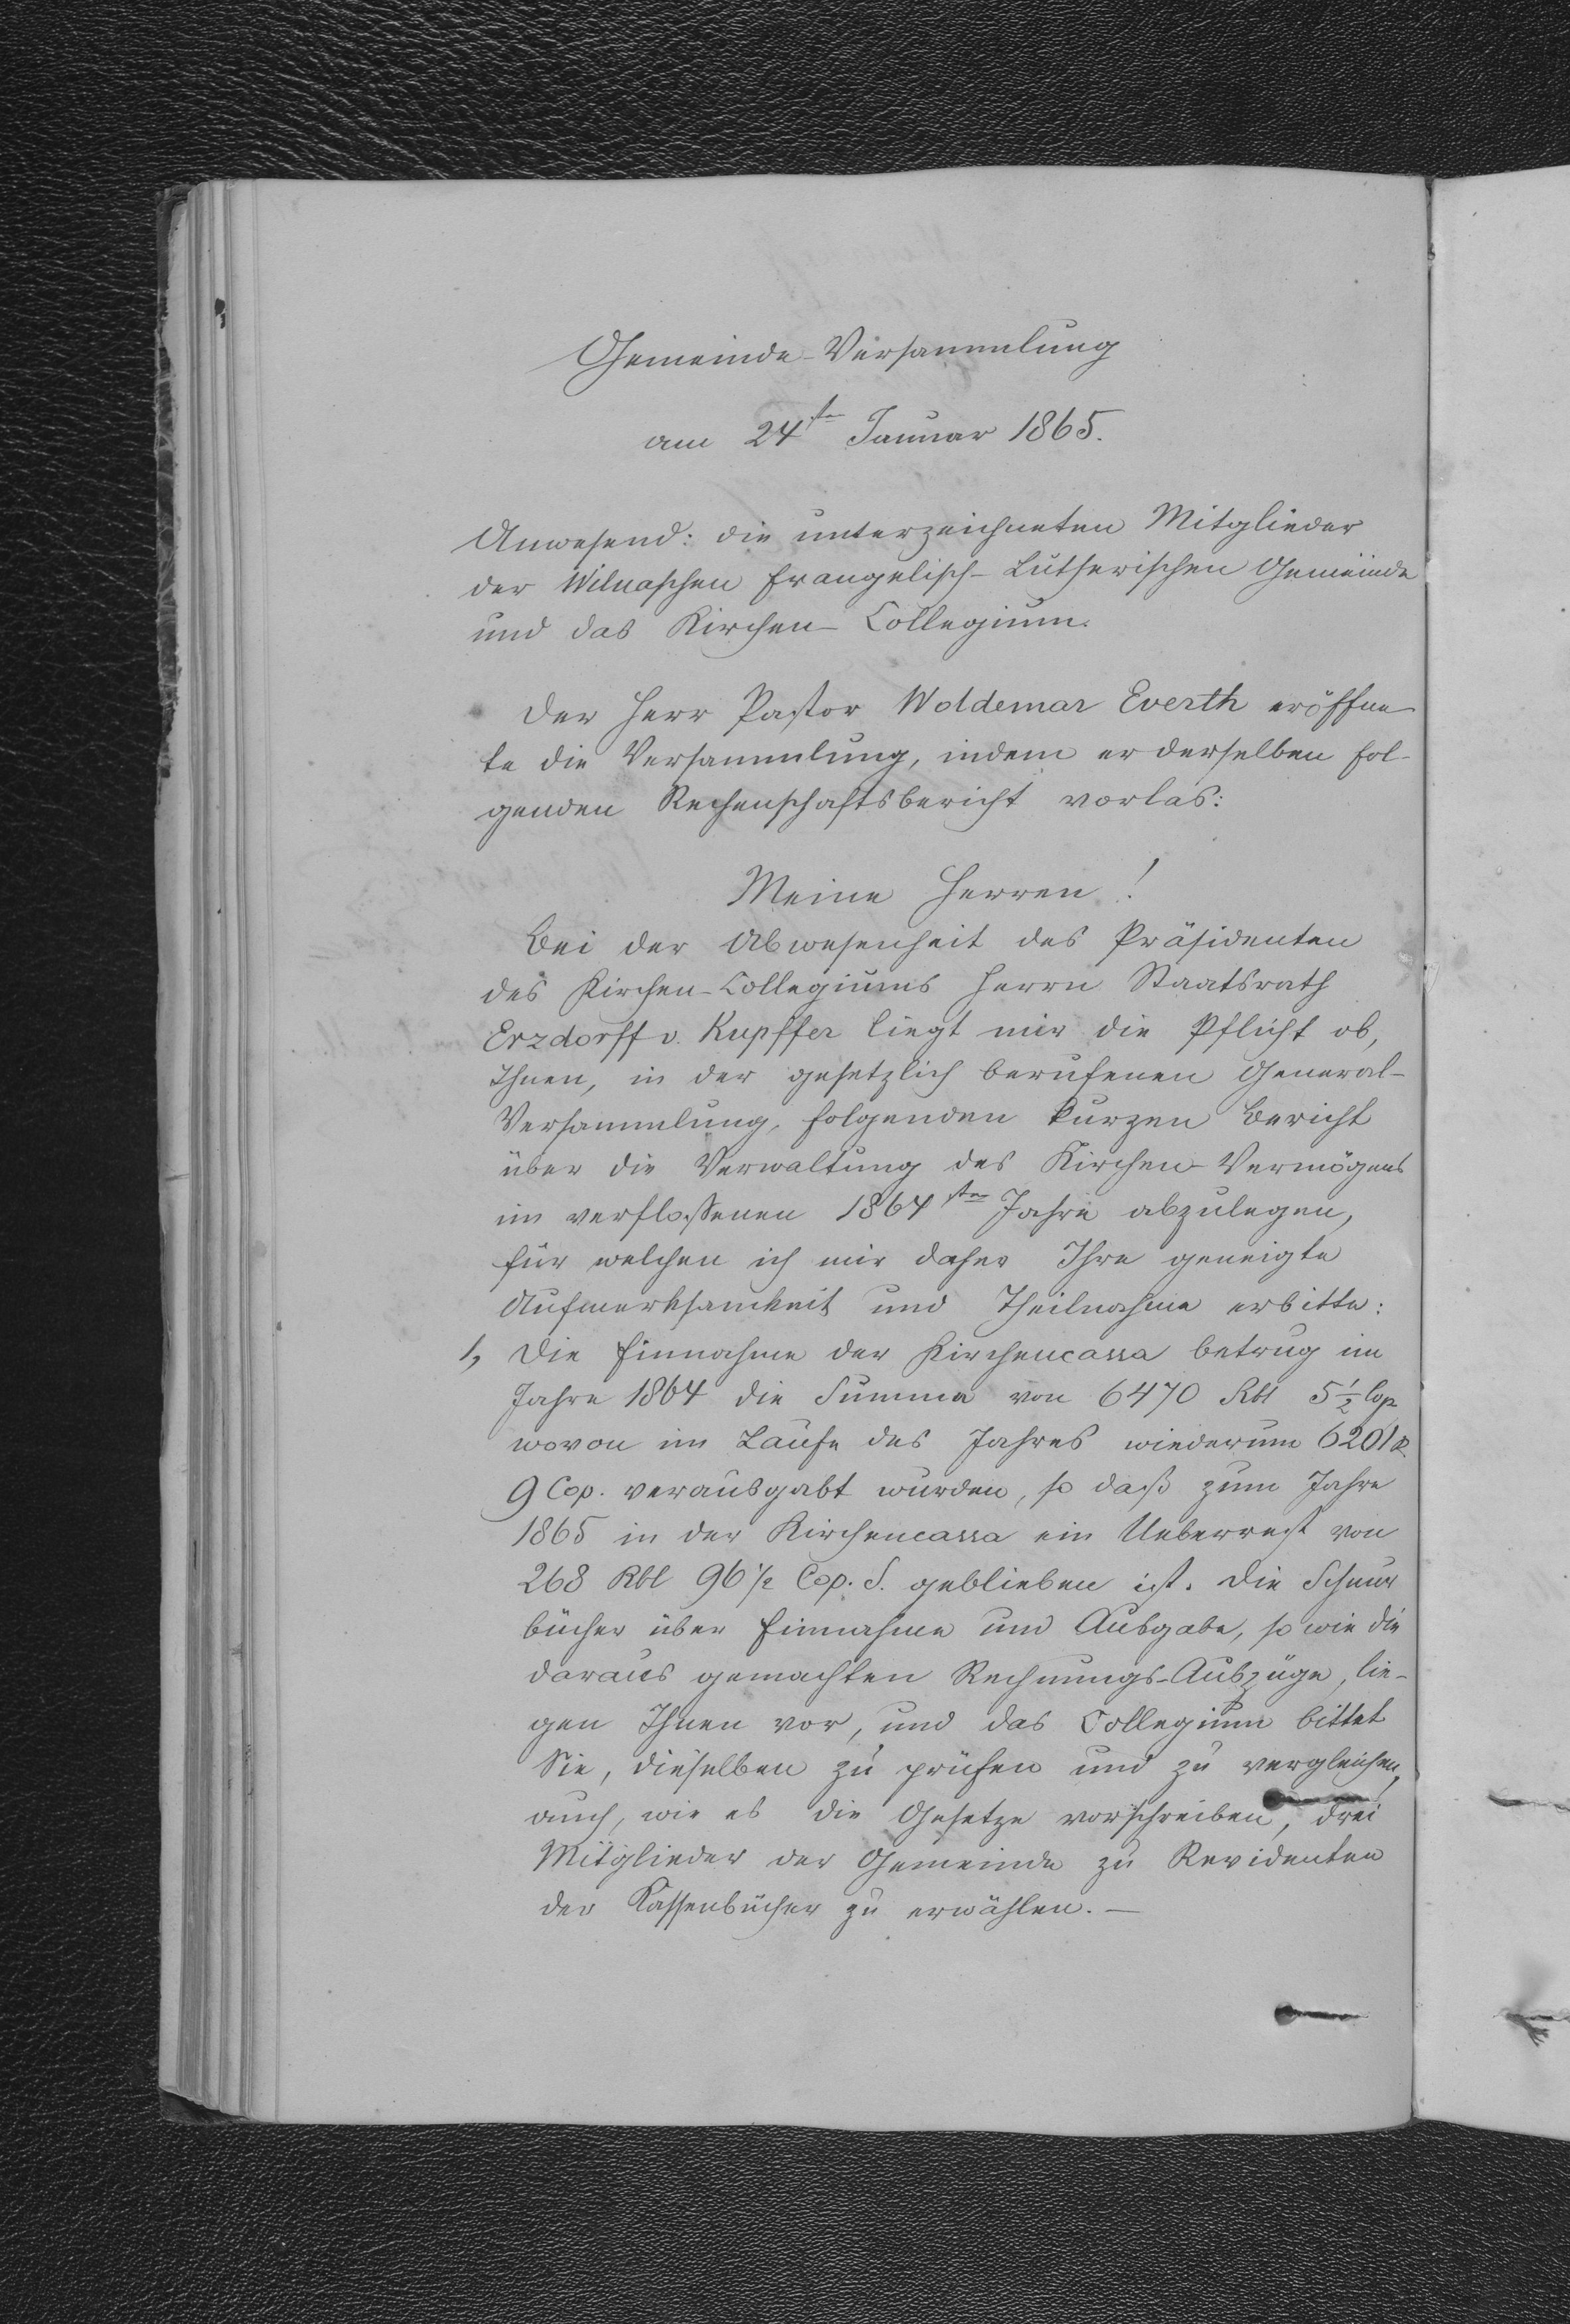 Gemeinde-Versammlung
am 24ten Januar 1865.
Anwesend: die unterzeichneten Mitglieder
der Wilnaschen Evangelisch-Lutherischen Gemeinde
und das Kirchen-Collegium.
Der Herr Pastor Woldemar Everth eröffne
te die Versammlung, indem er derselben fol-
genden Rechenschaftsbericht vorlas:
Meine Herren!
Bei der Abwesenheit des Präsidenten
des Kirchen-Collegiums Herrn Staatsrath
Erzdorff v. Kupffer liegt mir die Pflicht ob,
Ihnen, in der gesetzlich berufenen General-
Versammlung, folgenden kurzen Bericht
über die Verwaltung des Kirchen-Vermögens
im verflossenen 1864sten Jahre abzulegen,
für welchen ich mir daher Ihre geneigte
Aufmerksamkeit und Theilnahme erbitte:
1, Die Einnahme der Kirchencassa betrug im
Jahre 1864 die Summa von 6470 Rbl 5 1/2 Cop
wovon im Laufe des Jahres wiederum 6201 R
9 Cop. verausgabt wurden, so daß zum Jahre
1865 in der Kirchencassa ein Ueberrest von
268 Rbl 96 1/2 Cop. S. geblieben ist. Die Schnur
bücher über Einnahme und Ausgabe, so wie die
daraus gemachten Rechnungs-Auszüge, lie-
gen Ihnen vor, und das Collegium bittet
Sie, dieselben zu prüfen und zu vergleichen,
auch, wie es die Gesetze vorschreiben, drei
Mitglieder der Gemeinde zu Revidenten
der Kassenbücher zu erwählen. —